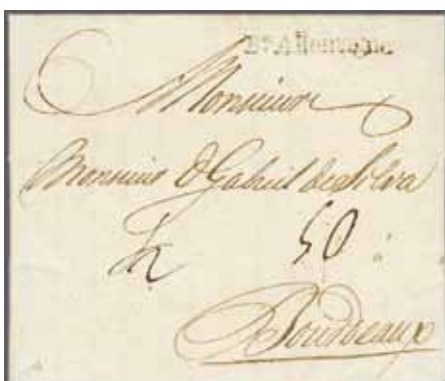 Bs. Allemagne
Monsieur
Monsieur D Gabriel de Silva
50
A Bourdeaux